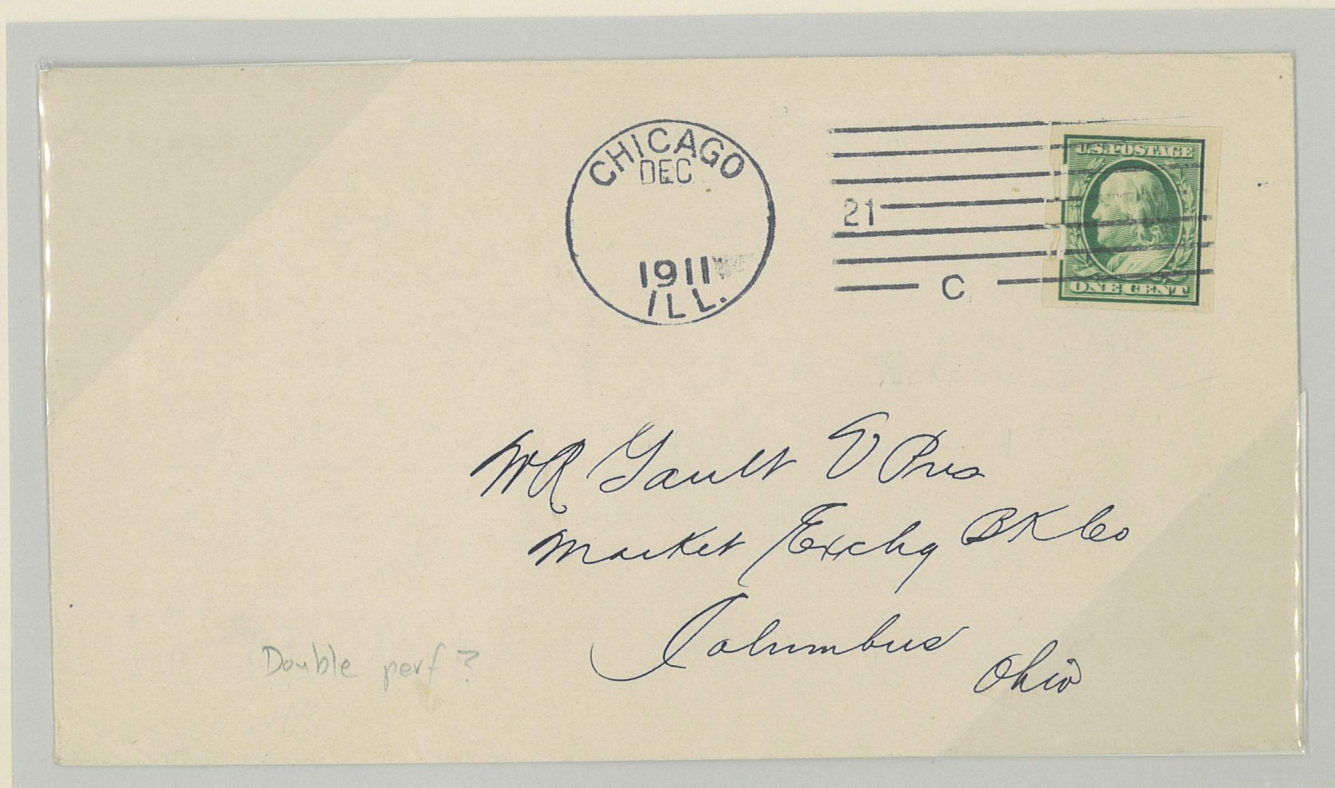 CHICAGO
DEC
1911
ILL.
21
C
U.S. POSTAGE
ONE CENT
WR Gault V Pres
Market Exchg BK Co
Columbus
Ohio
Double perf?